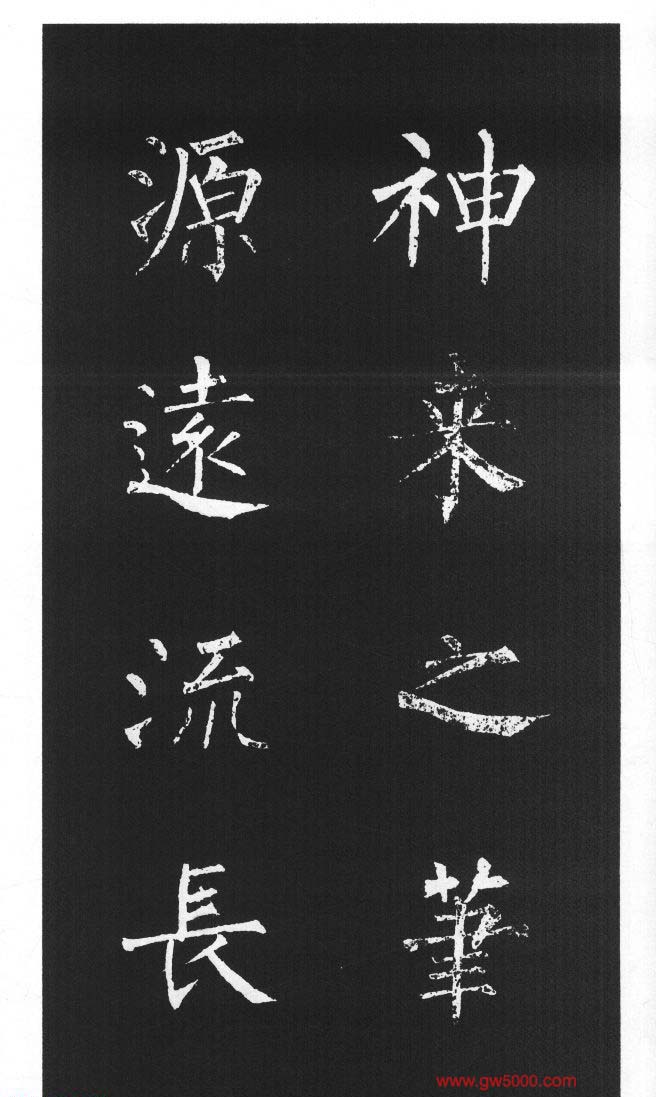 神来之筆
源遠流長
www.gw5000.com